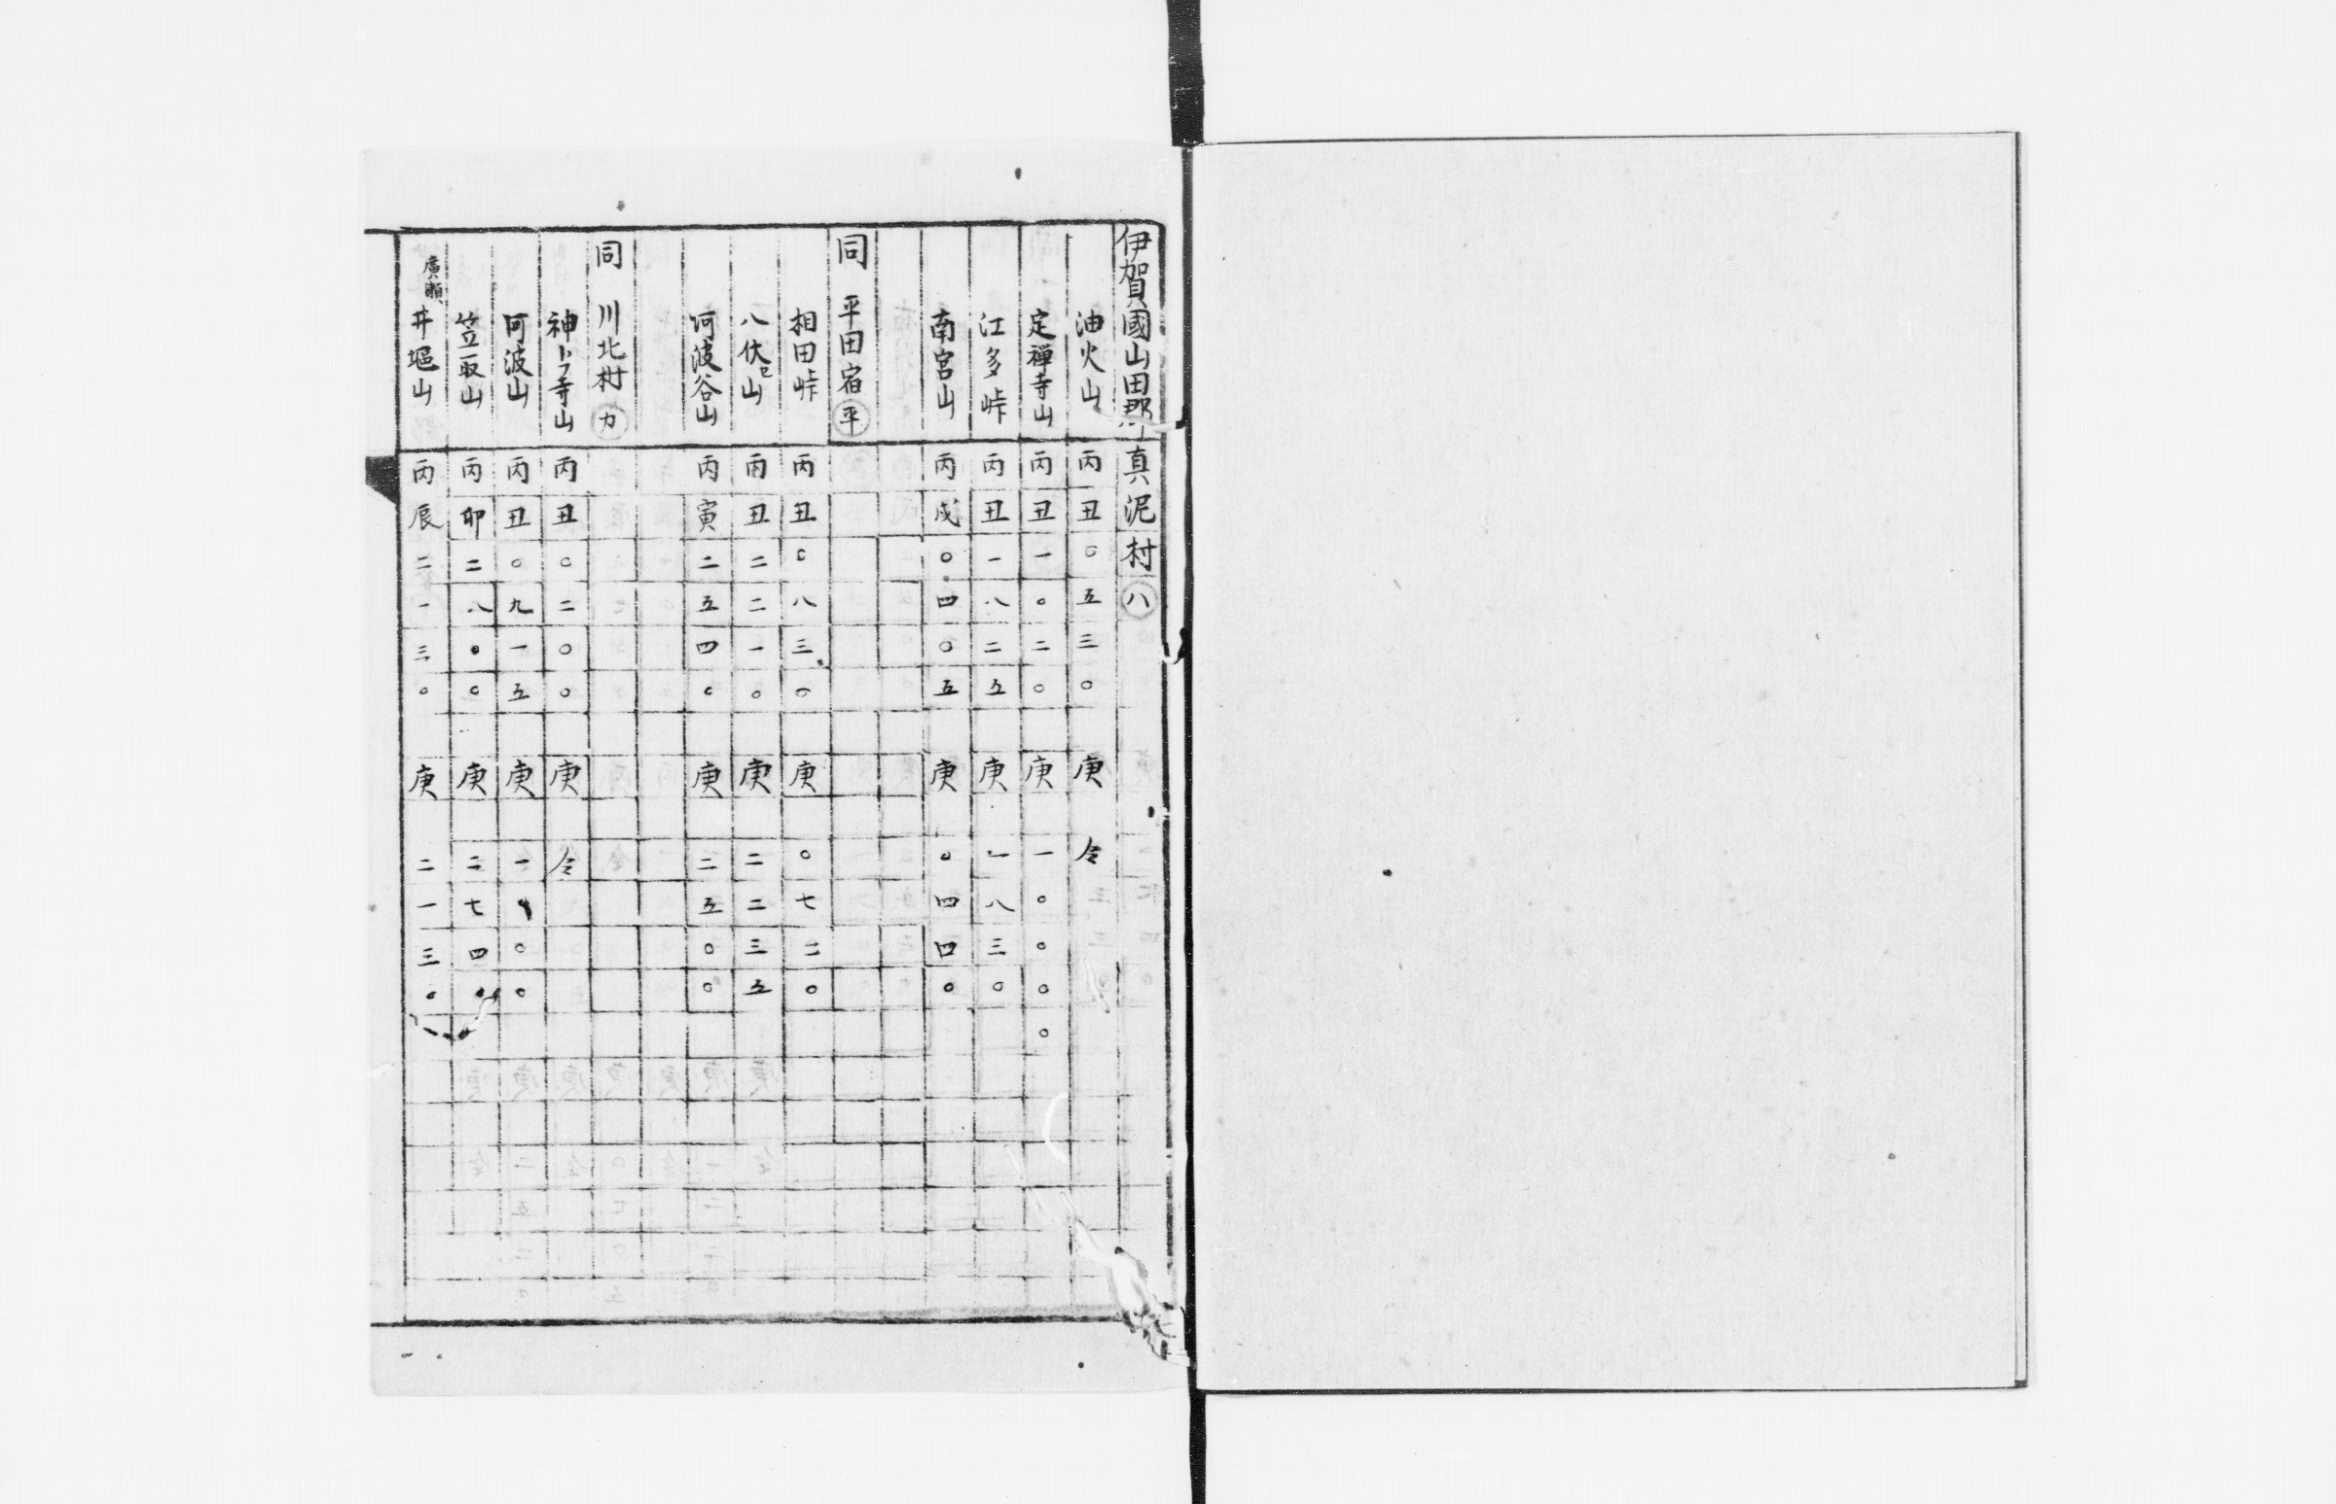 伊賀國山田郡真泥村㊇
油火山 丙丑〇五三〇 庚仝
定禅寺山 丙丑一〇二〇 庚一〇〇〇〇
江多峠 丙丑一八二五 庚一八三〇
南宮山 丙戌〇四〇五 庚〇四四〇
同 平田宿 平
相田峠 丙丑〇八三〇 庚〇七二〇
八伏山 丙丑二二一〇 庚二二三五
河波谷山 丙寅二五四〇 庚二五〇〇
同 川北村 カ
神トフ寺山 丙丑〇二〇〇 庚仝
阿波山 丙丑〇九一五 庚一〇〇
笠取山 丙卯二八〇〇 庚二七四〇
廣瀬 井堀山 丙辰二一三〇 庚二一三〇